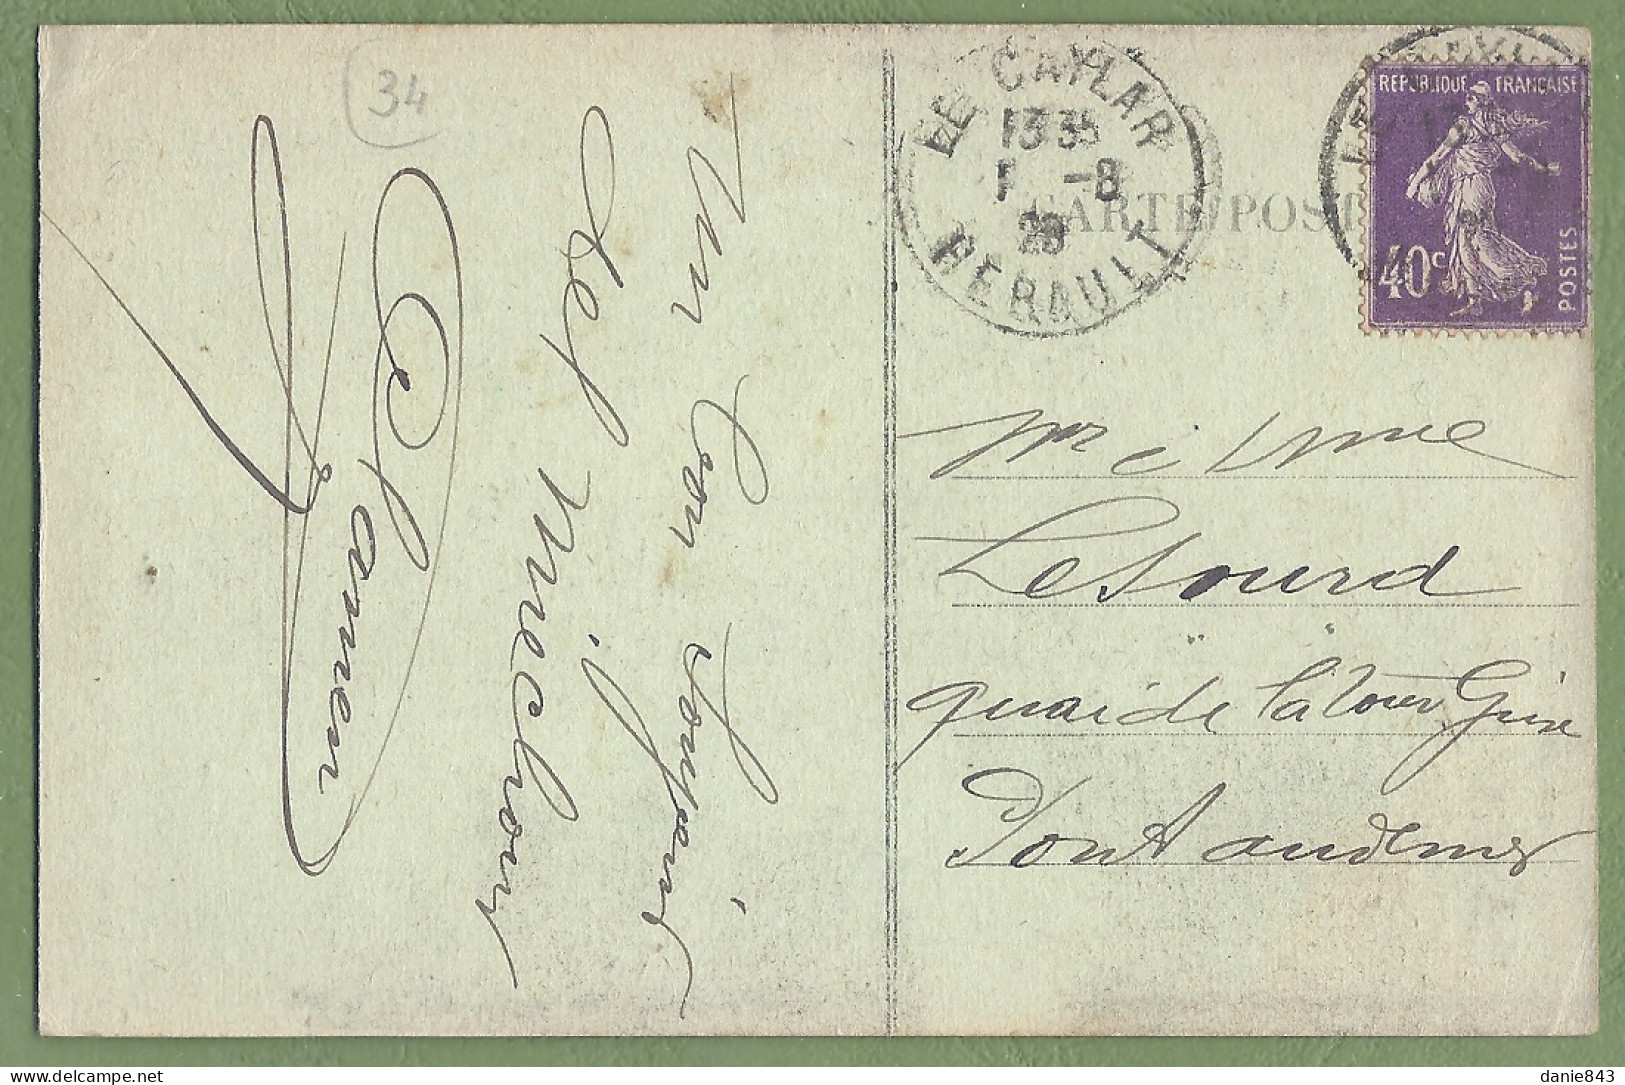 34
Un bon souvenir
del Michou
LE CAYLAR
13 35
1 -8
28
HERAULT
CARTE POST
REPUBLIQUE FRANCAISE
40c
POSTES
Mr e Mme
Lesourd
quai de la tour Grise
Pont audemer
danie843